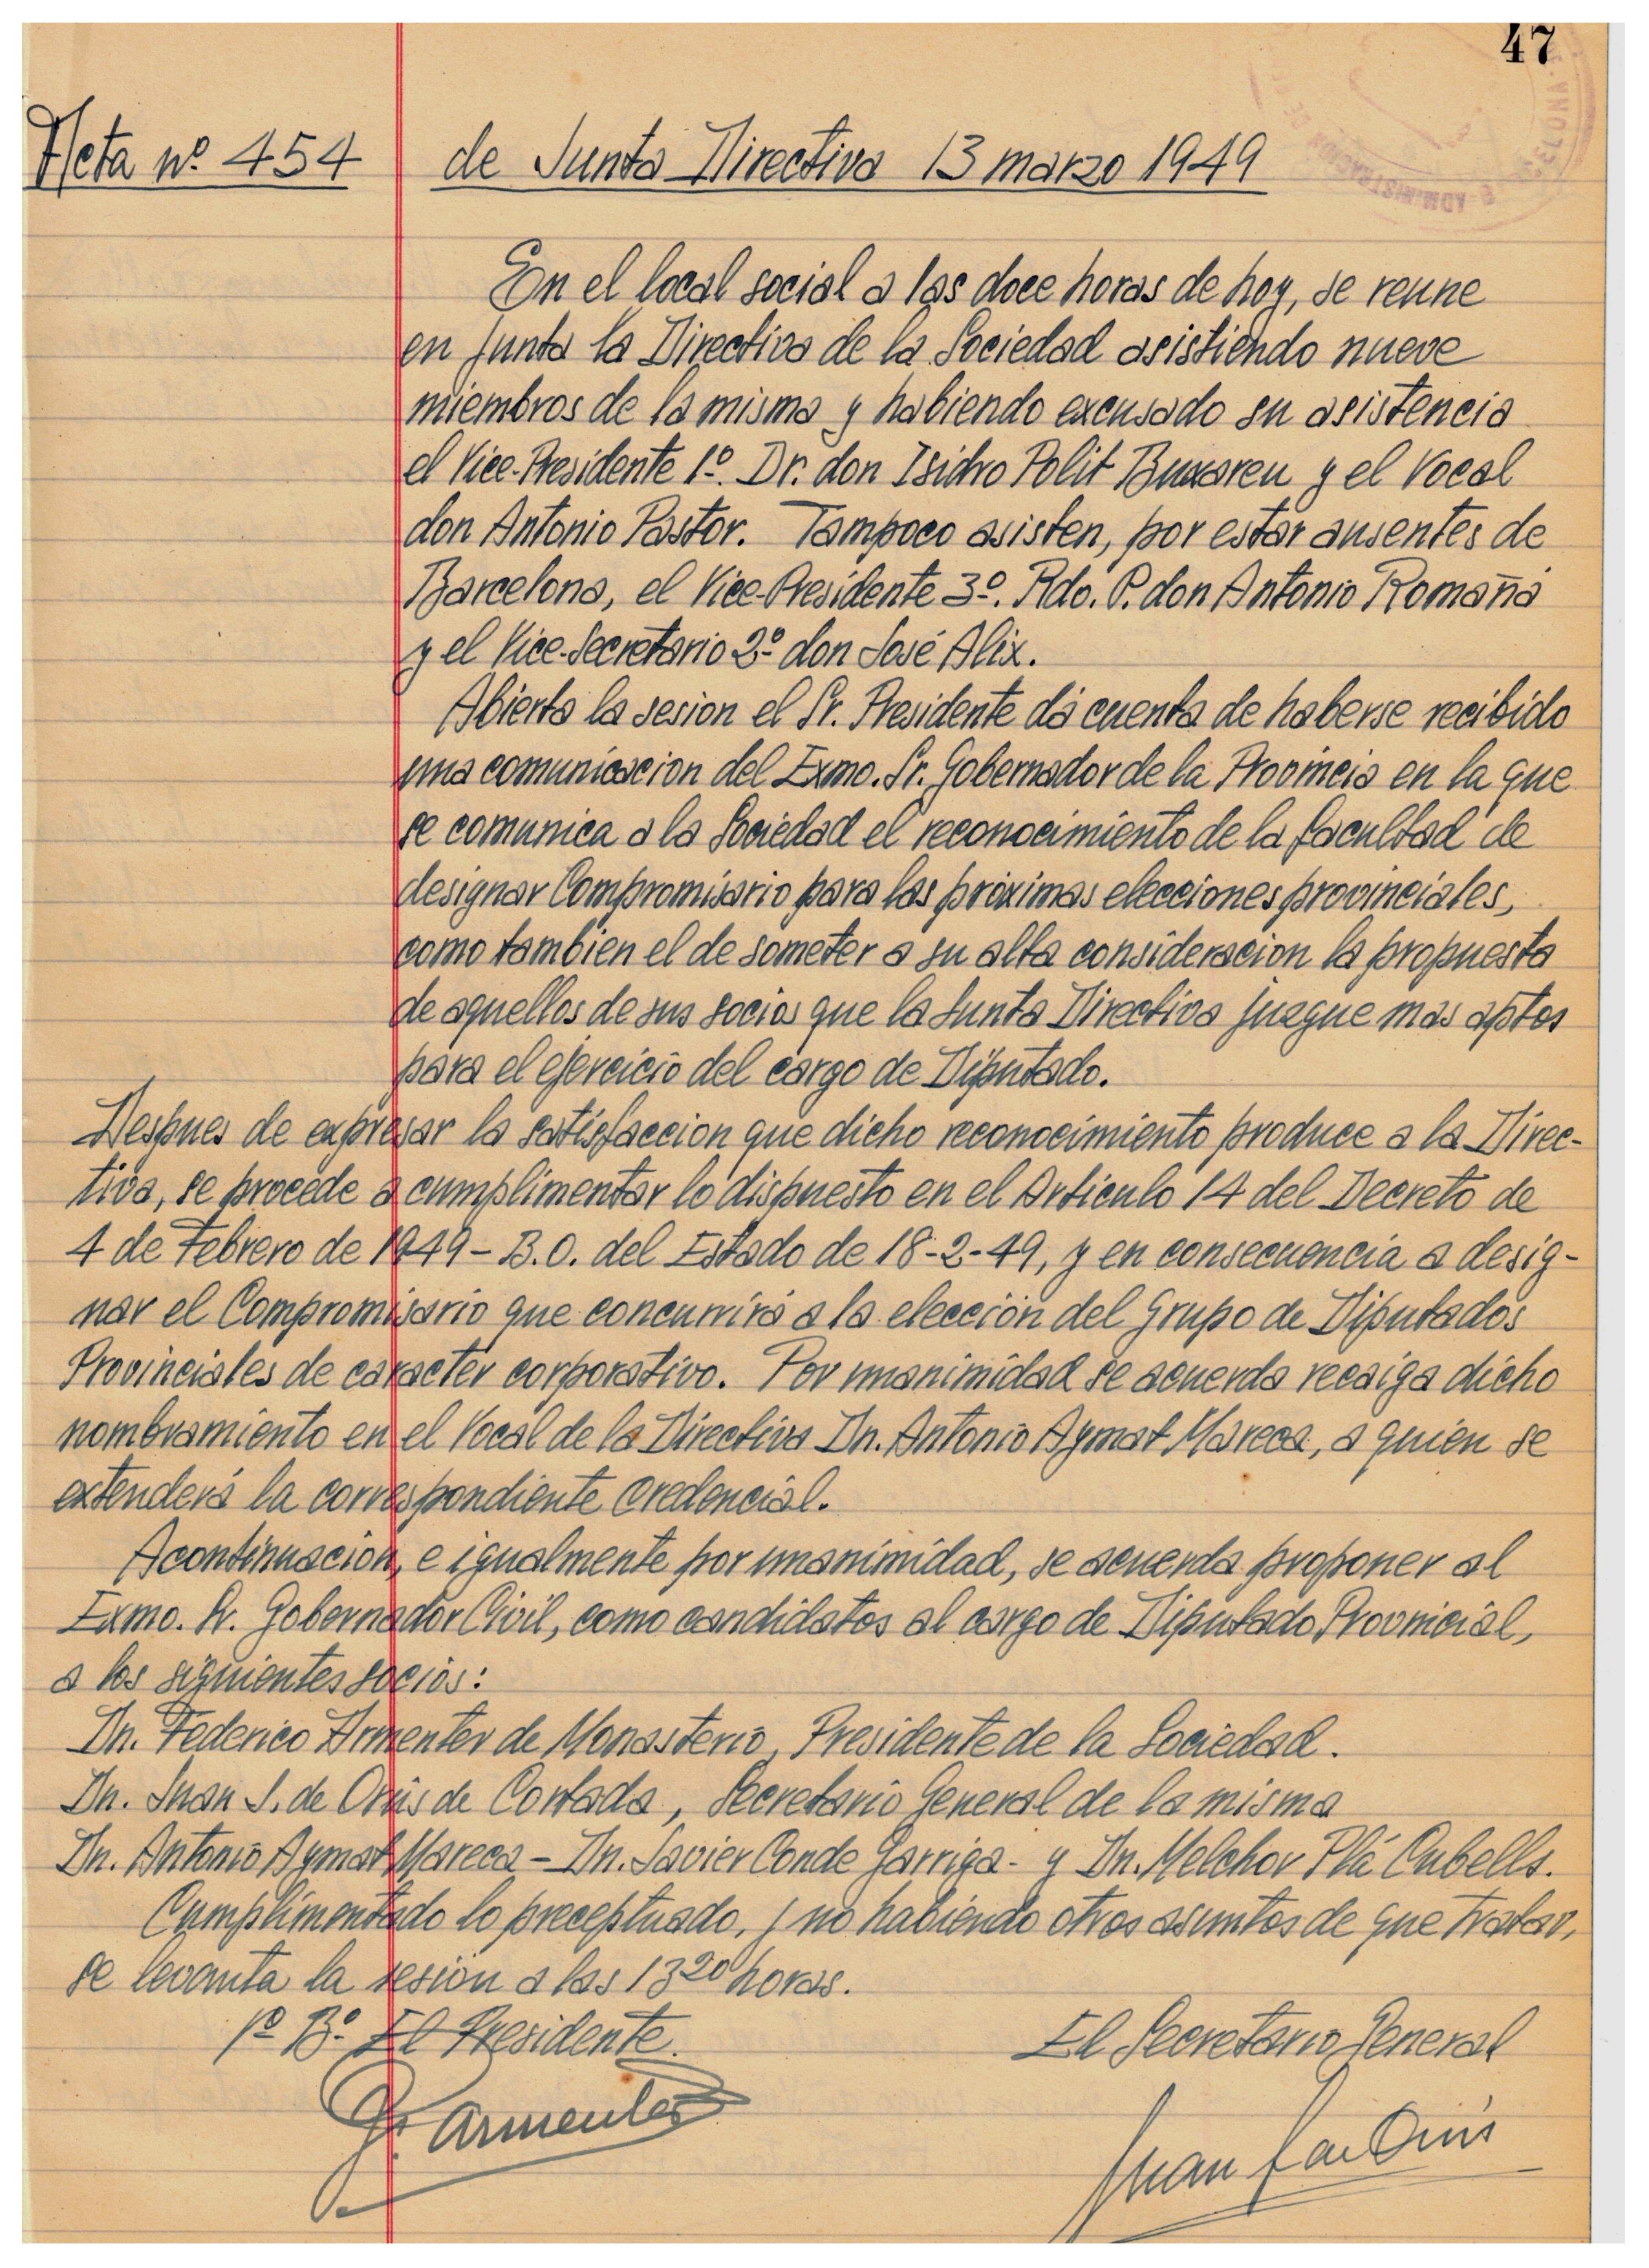 47
Acta nº 454 de Junta Directiva 13 marzo 1949
En el local social a las doce horas de hoy, se reune
en junta la Directiva de la Sociedad asistiendo nueve
miembros de la misma y habiendo excusado su asistencia
el Vice-Presidente 1º. Dr. don Isidro Polit Buxareu y el Vocal
don Antonio Pastor. Tampoco asisten, por estar ausentes de
Barcelona, el Vice-Presidente 3º. Rdo. P. don Antonio Romañá
y el Vice-Secretario 2º don José Alix.
Abierta la sesion el Sr. Presidente dá cuenta de haberse recibido
una comunicacion del Exmo. Sr. Gobernador de la Provincia en la que
se comunica a la Sociedad el reconocimiento de la facultad de
designar Compromisario para las próximas elecciones provinciales,
como tambien el de someter a su alta consideracion la propuesta
de aquellos de sus socios que la Junta Directiva juzgue mas aptos
para el ejercicio del cargo de Diputado.
Despues de expresar la satisfaccion que dicho reconocimiento produce a la Direc-
tiva, se procede a cumplimentar lo dispuesto en el Articulo 14 del Decreto de
4 de Febrero de 1949 - B.O. del Estado de 18-2-49, y en consecuencia a desig-
nar el Compromisario que concurrirá a la elección del Grupo de Diputados
Provinciales de caracter corporativo. Por unanimidad se acuerda recaiga dicho
nombramiento en el Vocal de la Directiva Dn. Antonio Aymat Mareca, a quien se
extenderá la correspondiente credencial.
A continuacion, e igualmente por unanimidad, se acuerda proponer al
Exmo. Sr. Gobernador Civil, como candidatos al cargo de Diputado Provincial,
a los siguientes socios:
Dn. Federico Armenter de Monasterio, Presidente de la Sociedad.
Dn. Juan J. de Orús de Cortada, Secretario General de la misma
Dn. Antonio Aymat Mareca - Dn. Javier Conde Garriga - y Dn. Melchor Plá Cubells.
Cumplimentado lo preceptuado, y no habiendo otros asuntos de que tratar,
se levanta la sesion a las 13 20 horas.
Vº Bº El Presidente
El Secretario General
F. Armenter
Juan J. de Orús